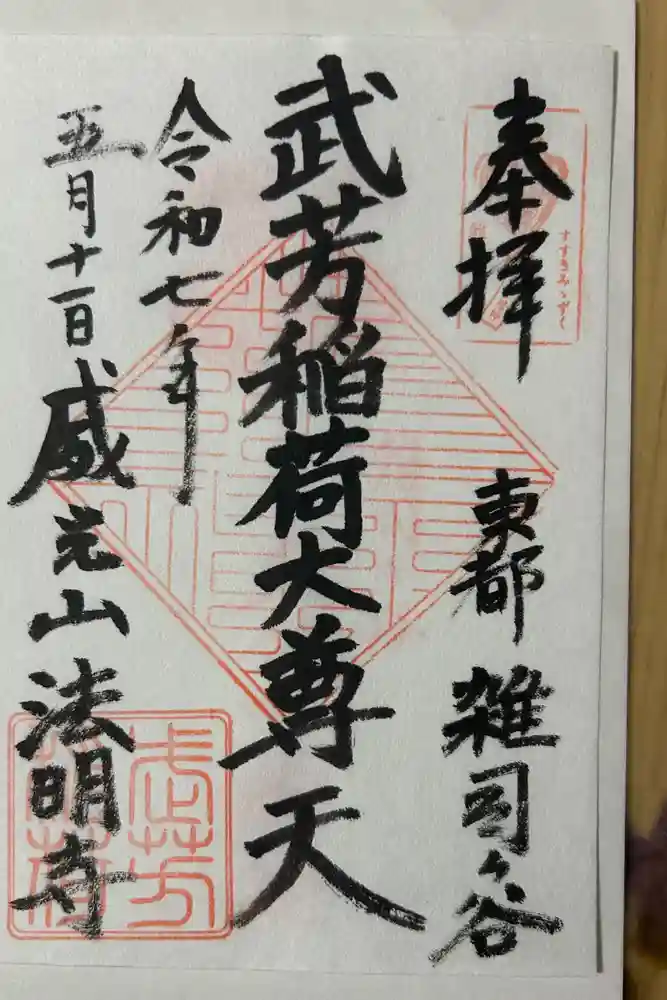 奉拝
すすきみゝずく
東都 雑司ヶ谷
武芳稲荷大尊天
令和七年
五月十一日
威光山法明寺
武芳
稲荷